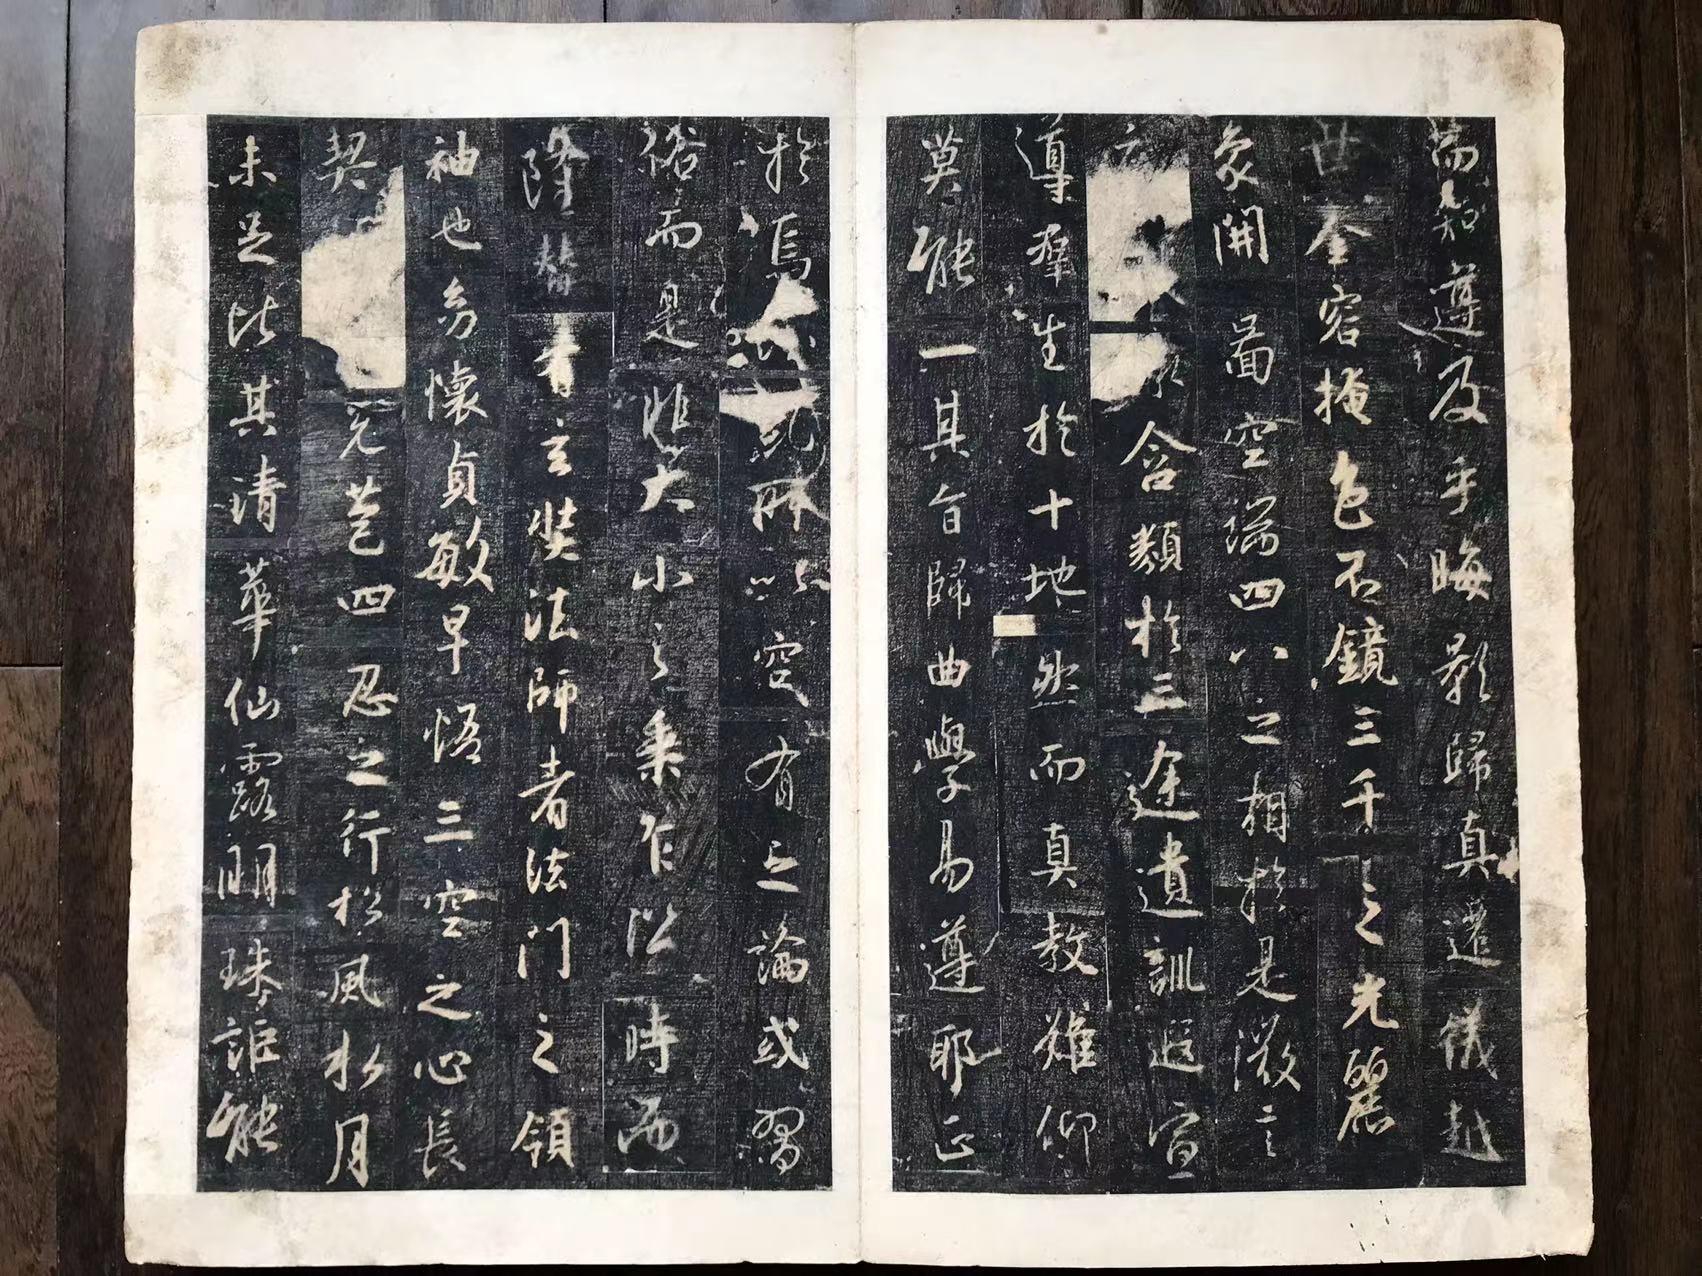 而知遵及乎晦影歸真遷儀越
世金容掩色不鏡三千之光麗
象開圖空端四八之相於是微言
含類於三途遺訓遐宣
導羣生於十地然而真教難仰
莫能一其旨歸曲學易遵耶正
於焉所以空有之論或習
俗而是非大小之乘乍沿時而
隆替有玄奘法師者法門之領
袖也幼懷貞敏早悟三空之心長
契先苞四忍之行松風水月
未足比其清華仙露明珠詎能